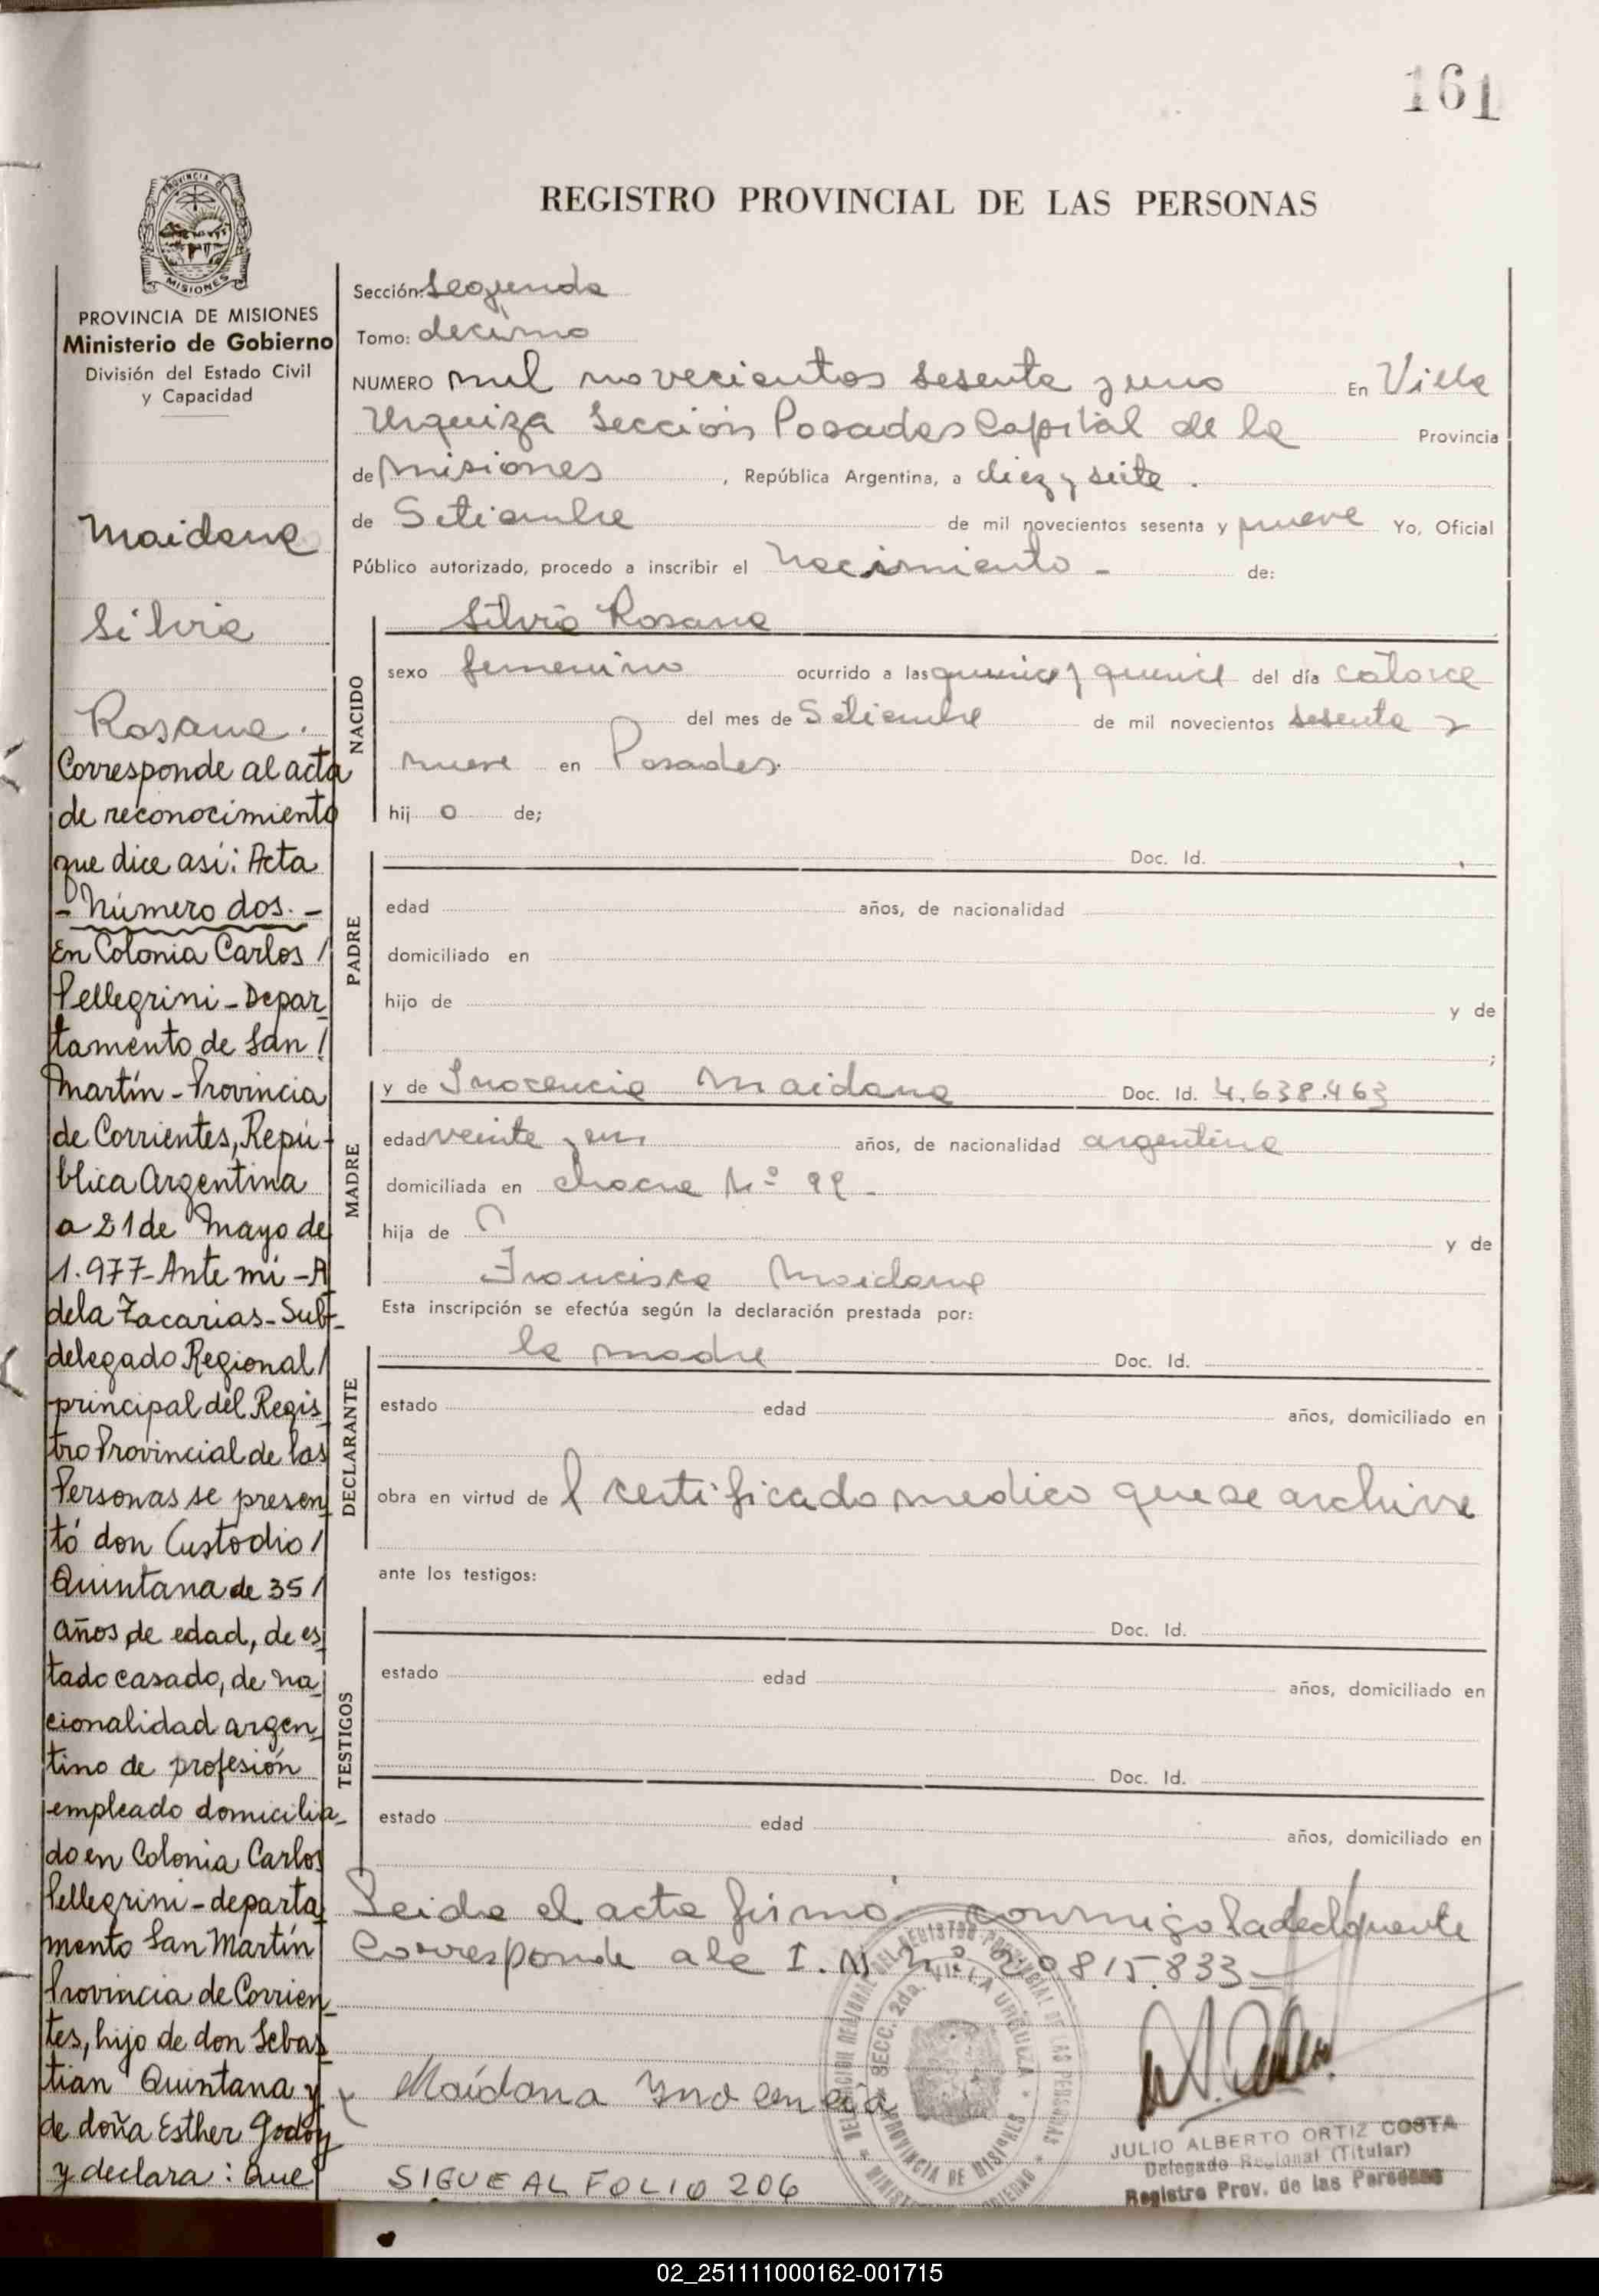 161
REGISTRO PROVINCIAL DE LAS PERSONAS
PROVINCIA DE MISIONES
PROVINCIA DE MISIONES
Ministerio de Gobierno
División del Estado Civil
y Capacidad
Maidana
Silvia
Rosana.
Corresponde al acta
de reconocimiento
que dice así: Acta
- Número dos. -
En Colonia Carlos /
Pellegrini - Depar_
tamento de San /
Martín - Provincia
de Corrientes, Repú-
blica Argentina
a 21 de Mayo de
1.977 - Ante mi - A
dela Zacarias - Sub-
delegado Regional /
principal del Regis_
tro Provincial de las
Personas se presen_
tó don Custodio /
Quintana de 35 /
años de edad, de es_
tado casado, de na_
cionalidad argen_
tino de profesión
empleado domicilia_
do en Colonia Carlos
Pellegrini - departa_
mento San Martín
Provincia de Corrien_
tes, hijo de don Sebas_
tian Quintana y
de doña Esther Godoy
y declara: Que
Sección: Segunda
Tomo: decimo
NUMERO mil novecientos sesenta y uno En Villa
Urquiza Sección Posadas Capital de la Provincia
de Misiones , República Argentina, a diez y siete .
de Setiembre de mil novecientos sesenta y nueve Yo, Oficial
Público autorizado, procedo a inscribir el Nacimiento - de:
NACIDO
Silvia Rosana
sexo femenino ocurrido a las quince y quince del día catorce
del mes de Setiembre de mil novecientos sesenta y
nueve en Posadas.
hij o de;
PADRE
Doc. Id.
edad años, de nacionalidad
domiciliado en
hijo de y de
;
MADRE
y de Inocencia Maidana Doc. Id. 4.638.463
edad veinte y un años, de nacionalidad argentina
domiciliada en chacra Nº 99 -
hija de y de
Francisca Maidana
Esta inscripción se efectúa según la declaración prestada por:
DECLARANTE
la madre Doc. Id.
estado edad años, domiciliado en
obra en virtud de l certificado medico que se archiva
ante los testigos:
TESTIGOS
Doc. Id.
estado edad años, domiciliado en
Doc. Id.
estado edad años, domiciliado en
Leida el acta firmó conmigo la declarante
Corresponde a la I. N. Nº 20815.833
DELEGACION REGIONAL DEL REGISTRO PROVINCIAL DE LAS PERSONAS
SECC. 2da. VILLA URQUIZA
PROVINCIA DE MISIONES
Maídana Ynocencia
JULIO ALBERTO ORTIZ COSTA
Delegado Regional (Titular)
Registro Prov. de las Personas
SIGUE AL FOLIO 206
02_251111000162-001715